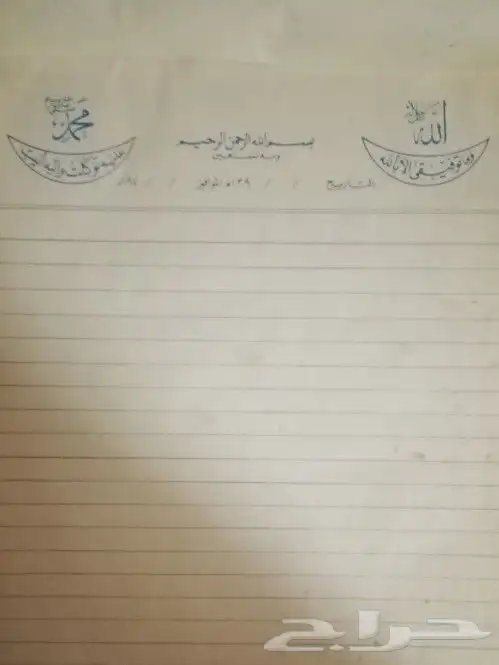 الله جل جلاله
وما توفيقي الا بالله
بسم الله الرحمن الرحيم
وبه نستعين
محمد
عليه توكلت واليه انيب
التاريخ / / ١٣٩هـ الموافق / / ١٩٧م
حراج